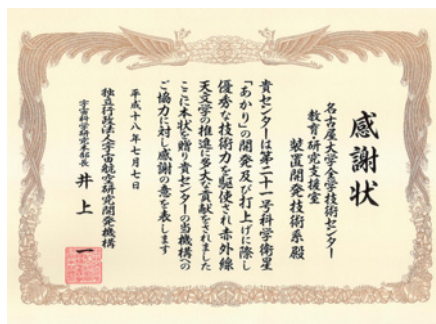 感謝状
名古屋大学全学技術センター
教育・研究支援室
装置開発技術系殿
貴センターは第二十一号科学衛星
「あかり」の開発及び打上げに際し
優秀な技術力を駆使され赤外線
天文学の推進に多大な貢献をされました
ここに本状を贈り貴センターの当機構への
ご協力に対し感謝の意を表します
平成十八年七月七日
独立行政法人宇宙航空研究開発機構
宇宙科学研究本部長 井上 一